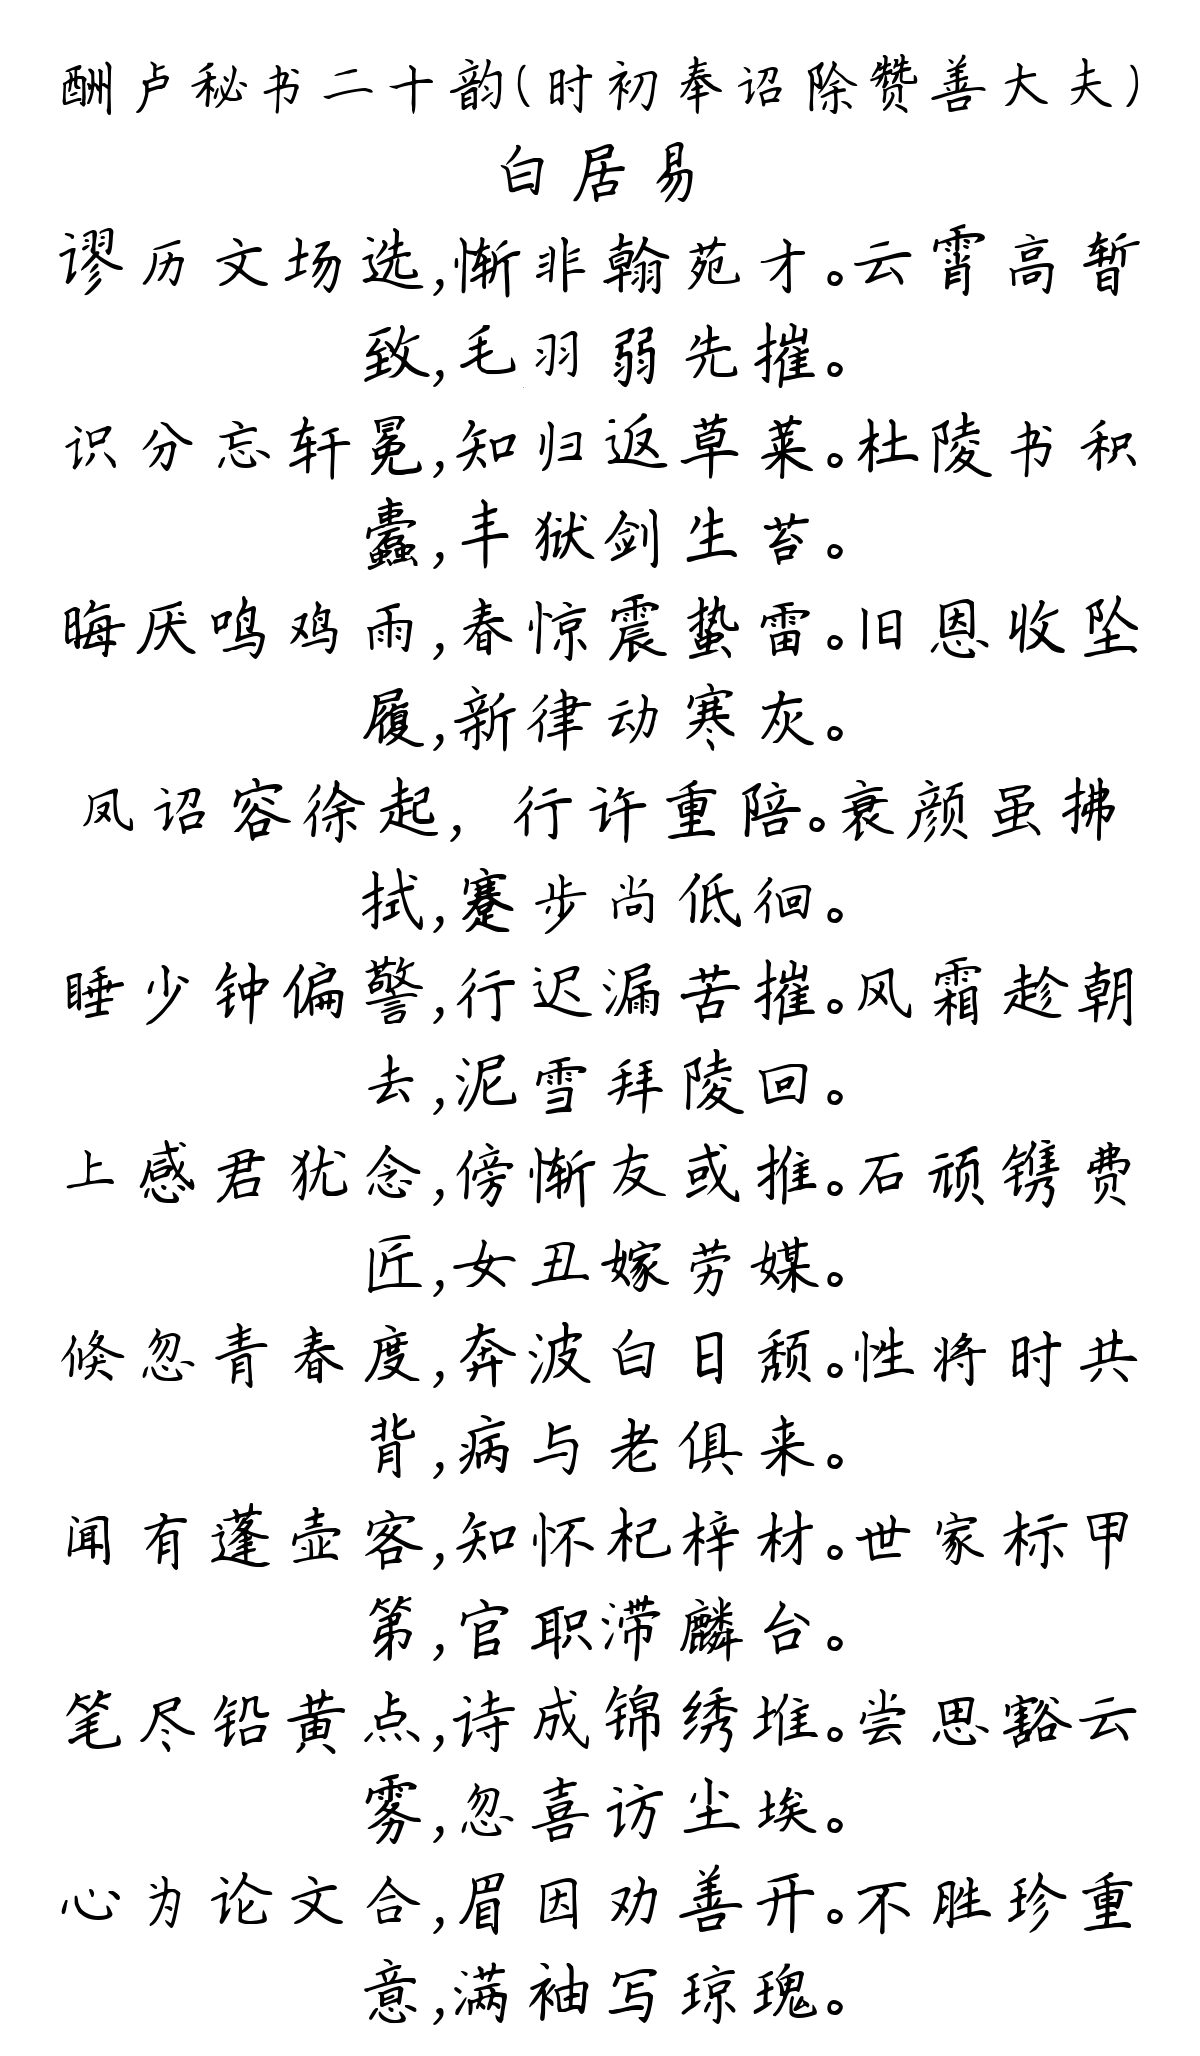 酬卢秘书二十韵(时初奉诏除赞善大夫)
白居易
谬历文场选,惭非翰苑才。云霄高暂
致,毛羽弱先摧。
识分忘轩冕,知归返草莱。杜陵书积
蠹,丰狱剑生苔。
晦厌鸣鸡雨,春惊震蛰雷。旧恩收坠
履,新律动寒灰。
凤诏容徐起,行许重陪。衰颜虽拂
拭,蹇步尚低徊。
睡少钟偏警,行迟漏苦摧。风霜趁朝
去,泥雪拜陵回。
上感君犹念,傍惭友或推。石顽镌费
匠,女丑嫁劳媒。
倏忽青春度,奔波白日颓。性将时共
背,病与老俱来。
闻有蓬壶客,知怀杞梓材。世家标甲
第,官职滞麟台。
笔尽铅黄点,诗成锦绣堆。尝思豁云
雾,忽喜访尘埃。
心为论文合,眉因劝善开。不胜珍重
意,满袖写琼瑰。